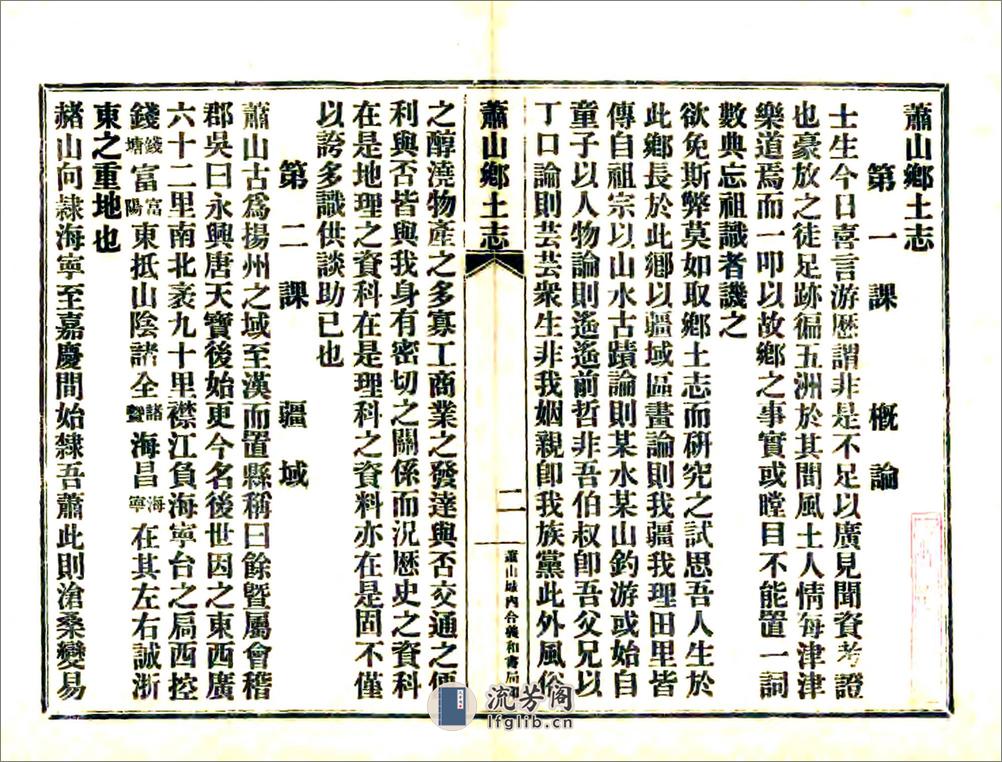 蕭山鄉土志
第一課 概論
士生今日喜言游歷謂非是不足以廣見聞資考證
也豪放之徒足跡徧五洲於其間風土人情每津津
樂道焉而一叩以故鄉之事實或瞠目不能置一詞
數典忘祖識者譏之
欲免斯弊莫如取鄉土志而研究之試思吾人生於
此鄉長於此鄉以疆域區畫論則我疆我理田里皆
傳自祖宗以山水古蹟論則某水某山釣游或始自
童子以人物論則遙遙前哲非吾伯叔卽吾父兄以
丁口論則芸芸衆生非我姻親卽我族黨此外風俗
蕭山鄉土志 二 蕭山城內合義和書局印
之醇澆物產之多寡工商業之發達與否交通之便
利與否皆與我身有密切之關係而況歷史之資科
在是地理之資科在是理科之資料亦在是固不僅
以誇多識供談助已也
第二課 疆域
蕭山古爲揚州之域至漢而置縣稱曰餘暨屬會稽
郡吳曰永興唐天寶後始更今名後世因之東西廣
六十二里南北袤九十里襟江負海寧台之扃西控
錢錢塘富富陽東抵山陰諸全諸暨海昌海寧在其左右誠浙
東之重地也
赭山向隸海寧至嘉慶間始隸吾蕭此則滄桑變易
流芳阁
lfglib.cn